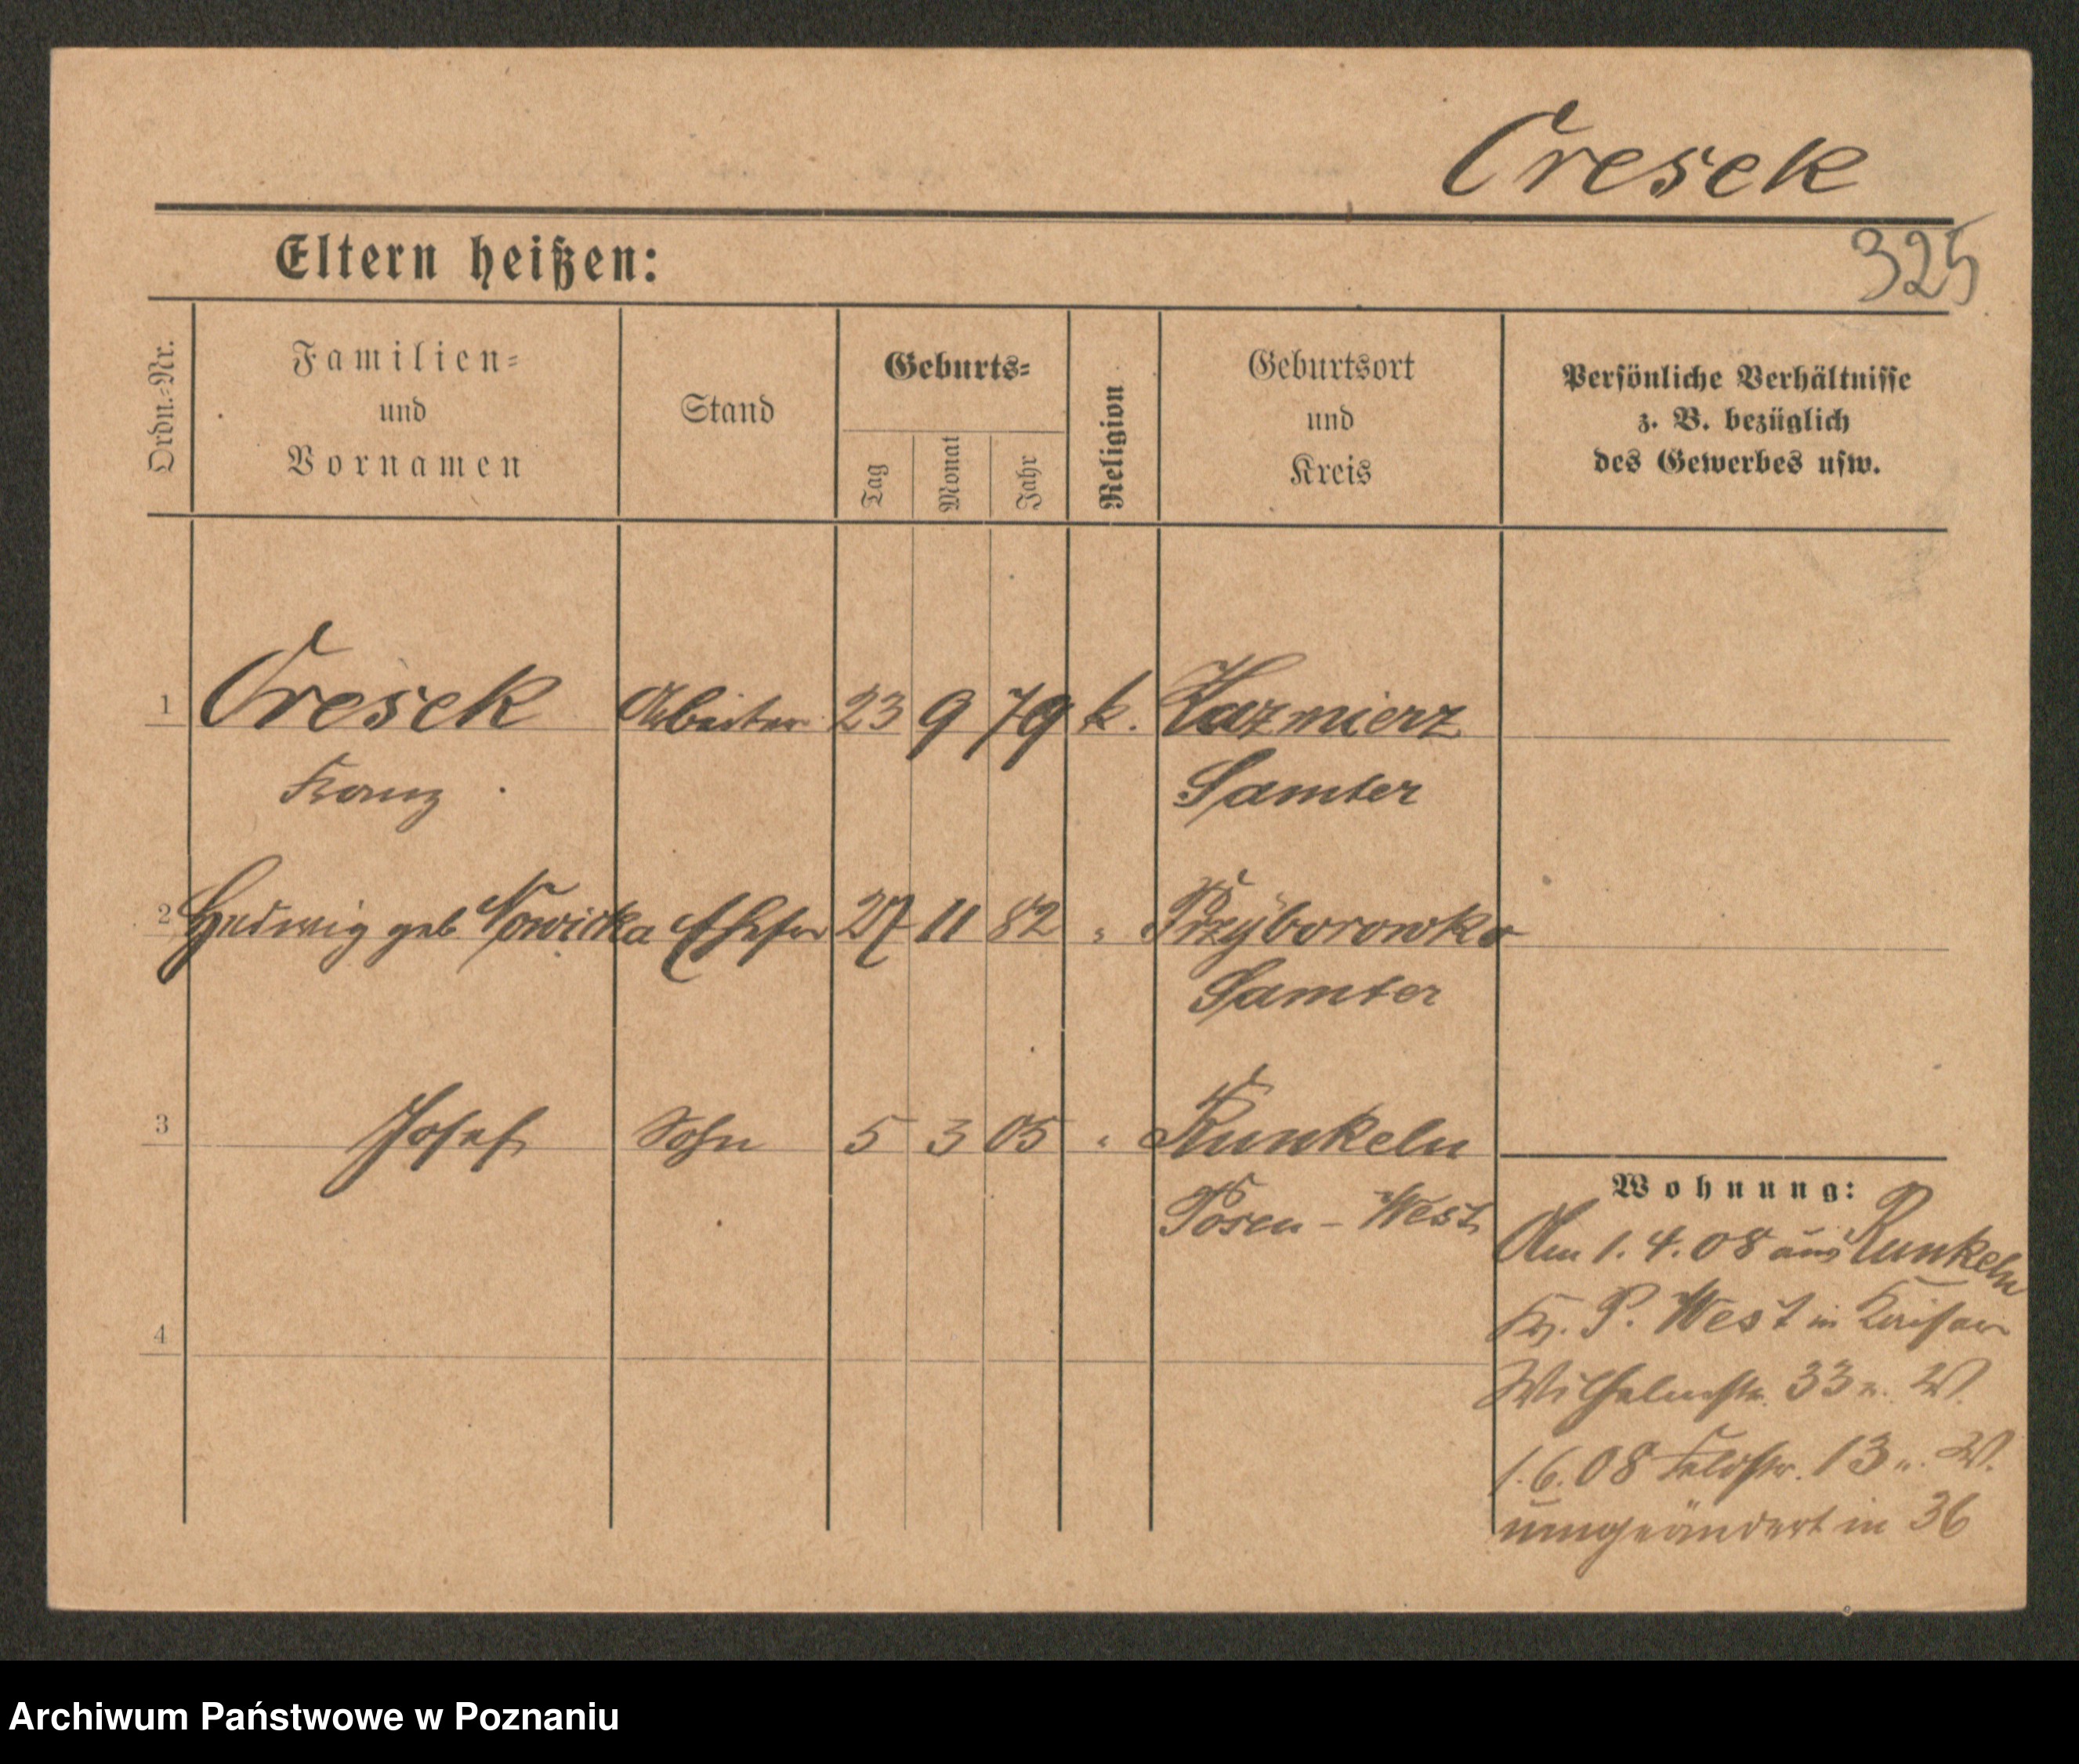 Cresek
325
Eltern heißen:
Ordn.-Nr.
Familien-
und
Vornamen
Stand
Geburts-
Tag
Monat
Jahr
Religion
Geburtsort
und
Kreis
Persönliche Verhältnisse
z. B. bezüglich
des Gewerbes usw.
1 Cresek Arbeiter 23 9 79 k. Kazmierz
Franz Samter
2 Hedwig geb. Nowicka Ehefr 27 11 82 " Przyborowko
Samter
3 Josef Sohn 5 3 05 " Runkeln
Posen - West
4
Wohnung:
Am 1. 4. 08 aus Runkeln
Kr. P. West in Kaiser
Wilhelmstr. 33 n. W.
1. 6. 08 Feldstr. 13 n. W.
umgeändert in 36
Archiwum Państwowe w Poznaniu